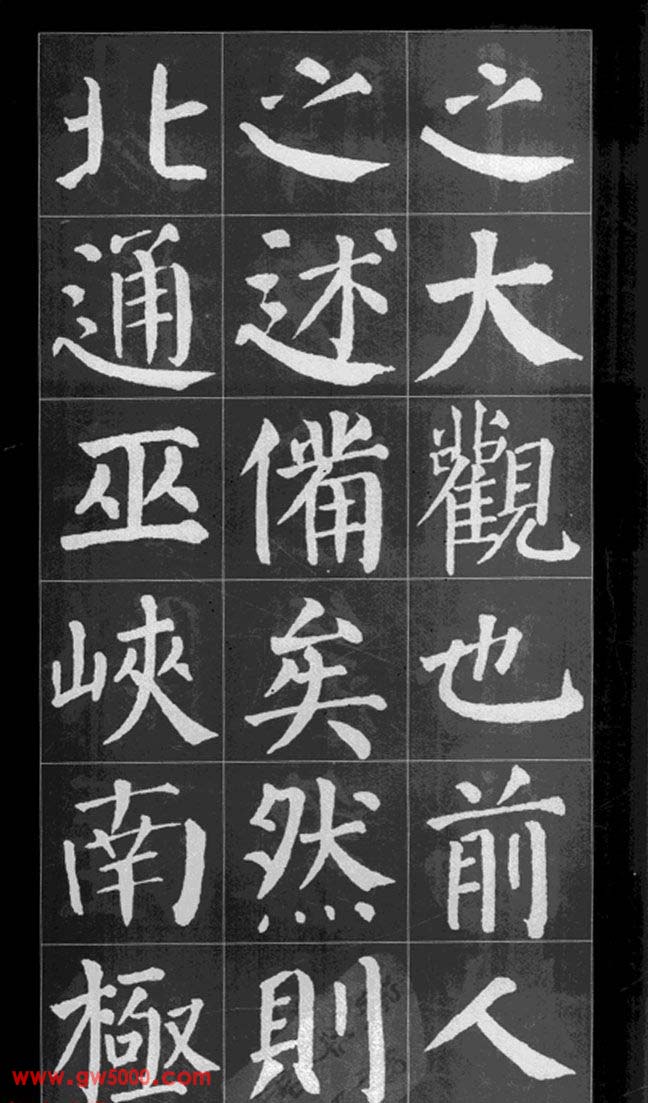 之大觀也前人
之述備矣然則
北通巫峽南極
www.gw5000.com